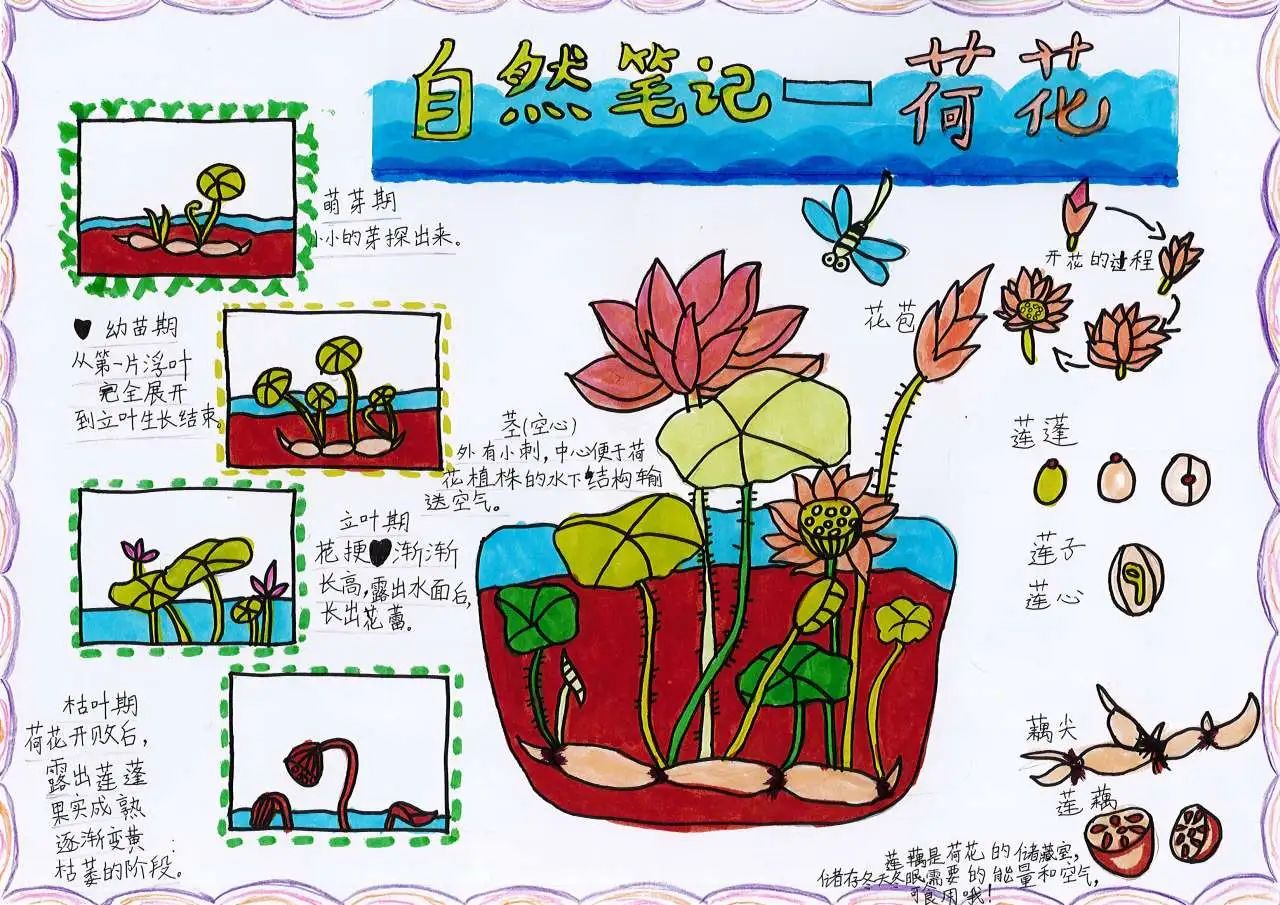 自然笔记一荷花
萌芽期
小小的芽探出来。
幼苗期
从第一片浮叶
完全展开
到立叶生长结束。
茎(空心)
外有小刺，中心便于荷
花植株的水下结构输
送空气。
立叶期
花梗渐渐
长高，露出水面后，
长出花蕾。
枯叶期
荷花开败后，
露出莲蓬
果实成熟
逐渐变黄
枯萎的阶段。
花苞
开花的过程
莲蓬
莲子
莲心
藕尖
莲藕
莲藕是荷花的储藏室，
储存冬天冬眠需要的能量和空气，
可食用哦！